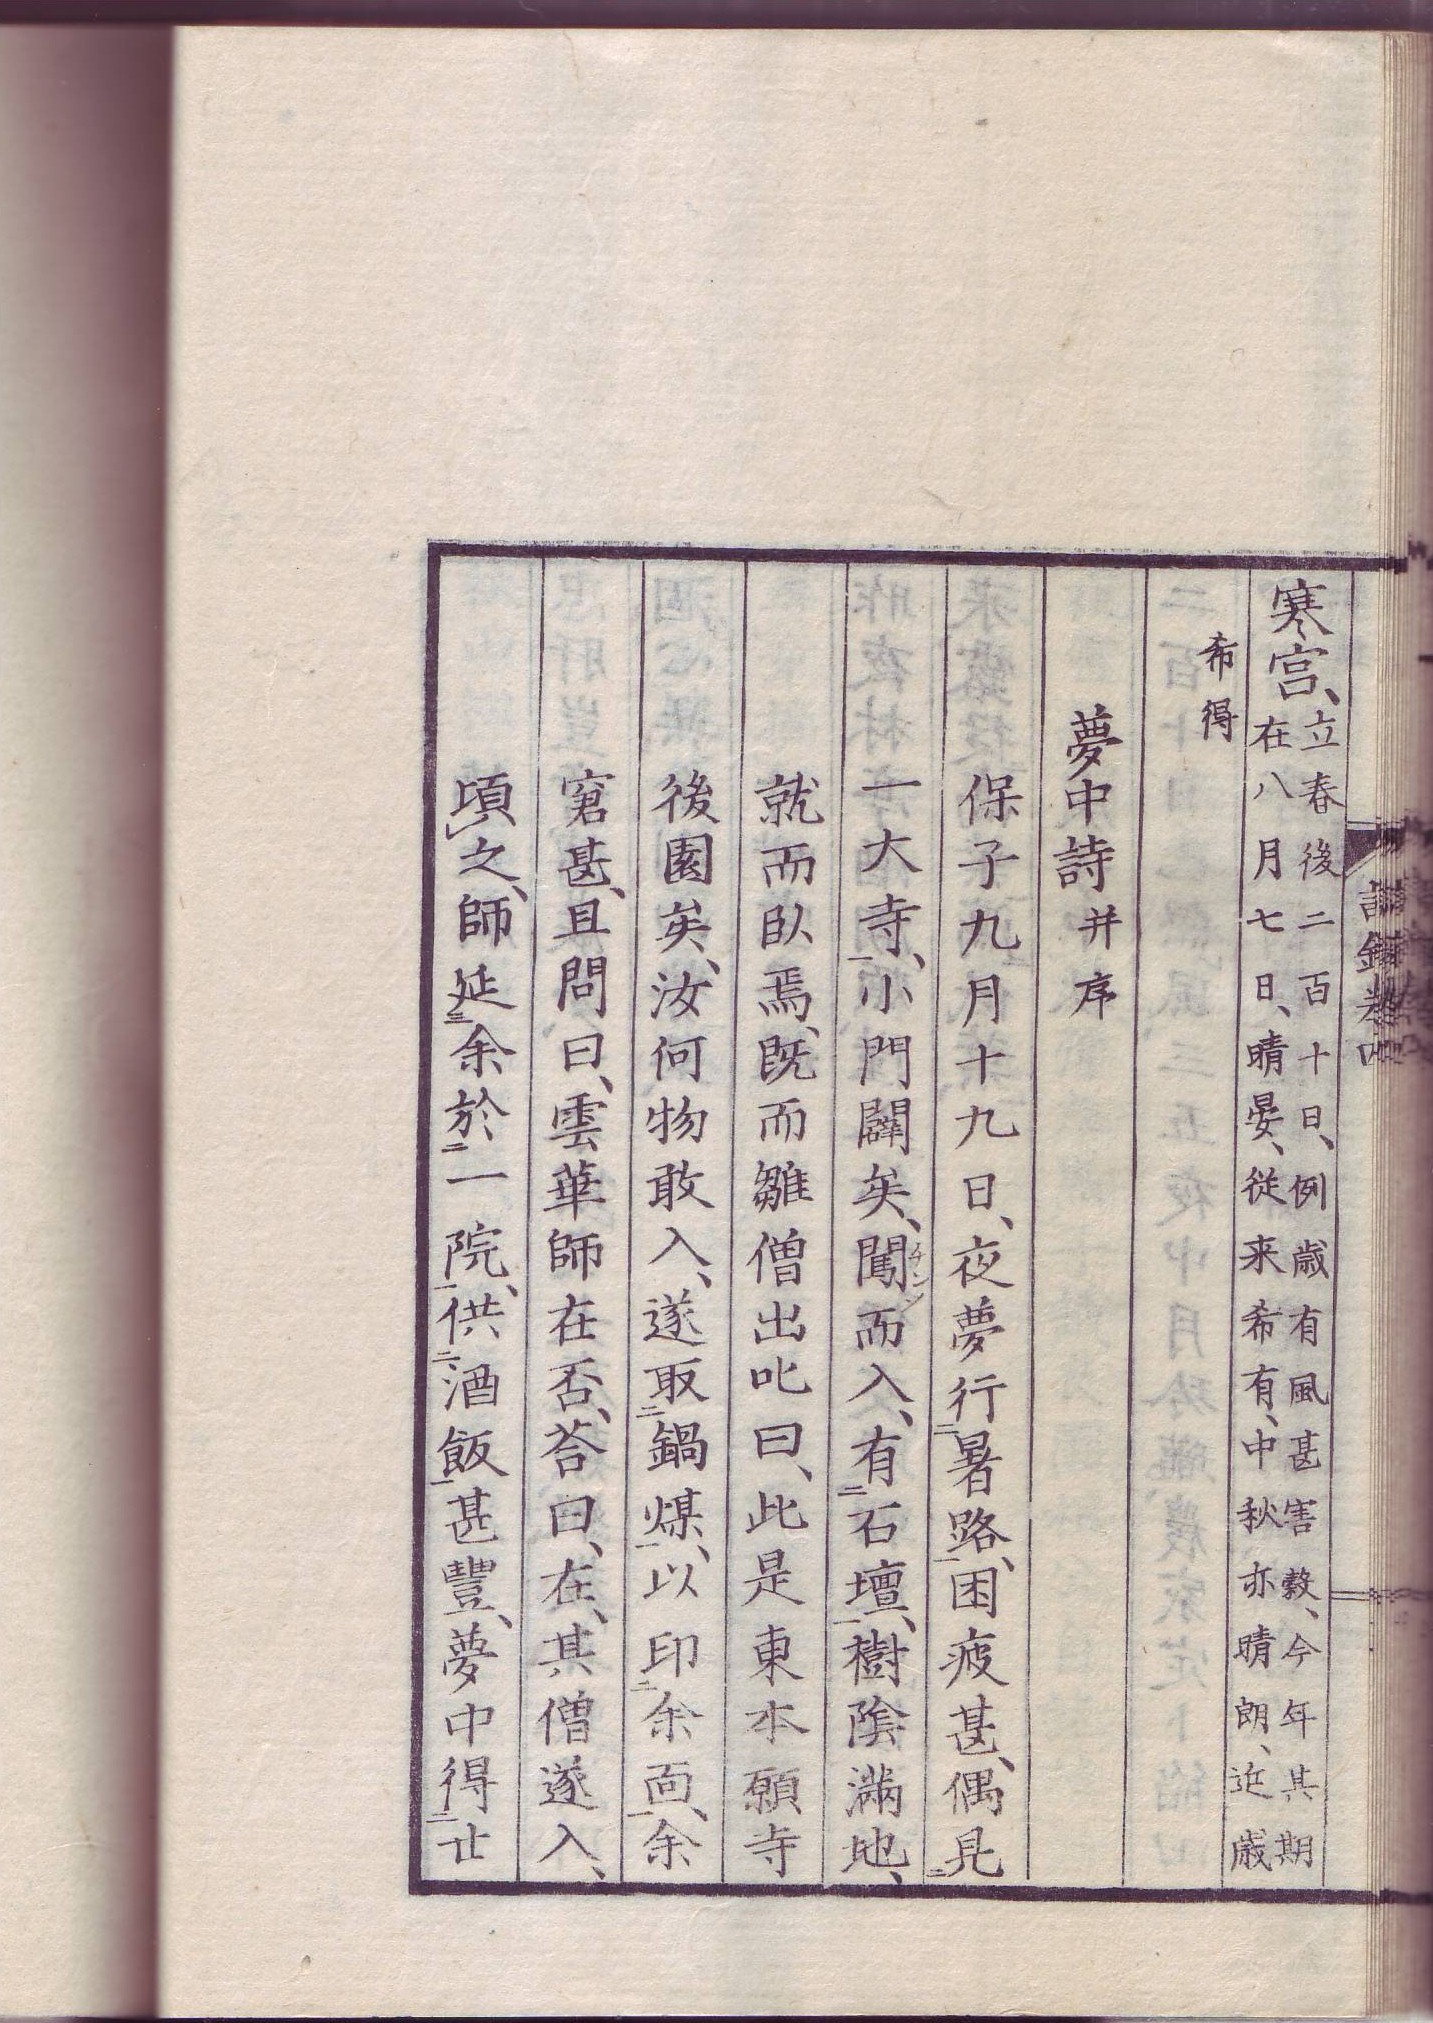 寒宮、立春後二百十日、例歳有風甚害穀、今年其期
在八月七日、晴晏、従来希有、中秋亦晴朗、近歳
希得
夢中詩并序
保子九月十九日、夜夢行二暑路一、困疲甚、偶見二
一大寺一、小門闢矣、闖チンノ而入、有二石壇一、樹陰満地、
就而臥焉、既而雛僧出叱曰、此是東本願寺
後園矣、汝何物敢入、遂取二鍋煤一、以印二余面一、余
窘甚、且問曰、雲華師在否、荅曰、在、其僧遂入、
頃之、師延三余於二一院一、供二酒飯一甚豐、夢中得二廿